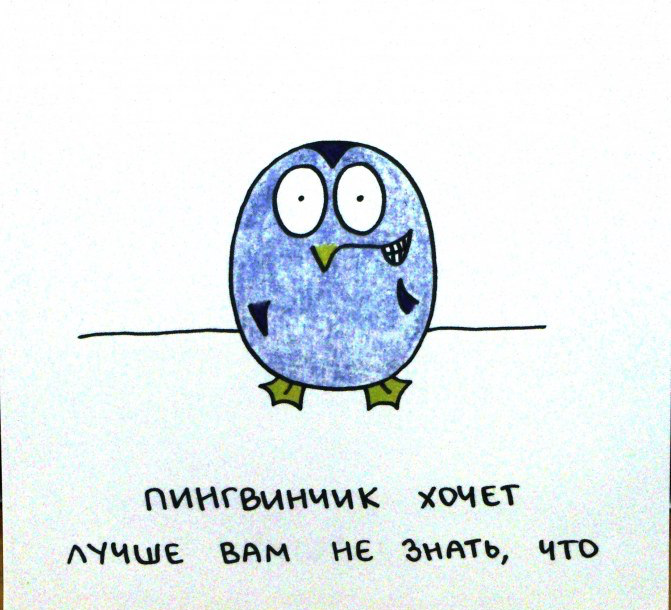 ПИНГВИНЧИК ХОЧЕТ
ЛУЧШЕ ВАМ НЕ ЗНАТЬ, ЧТО